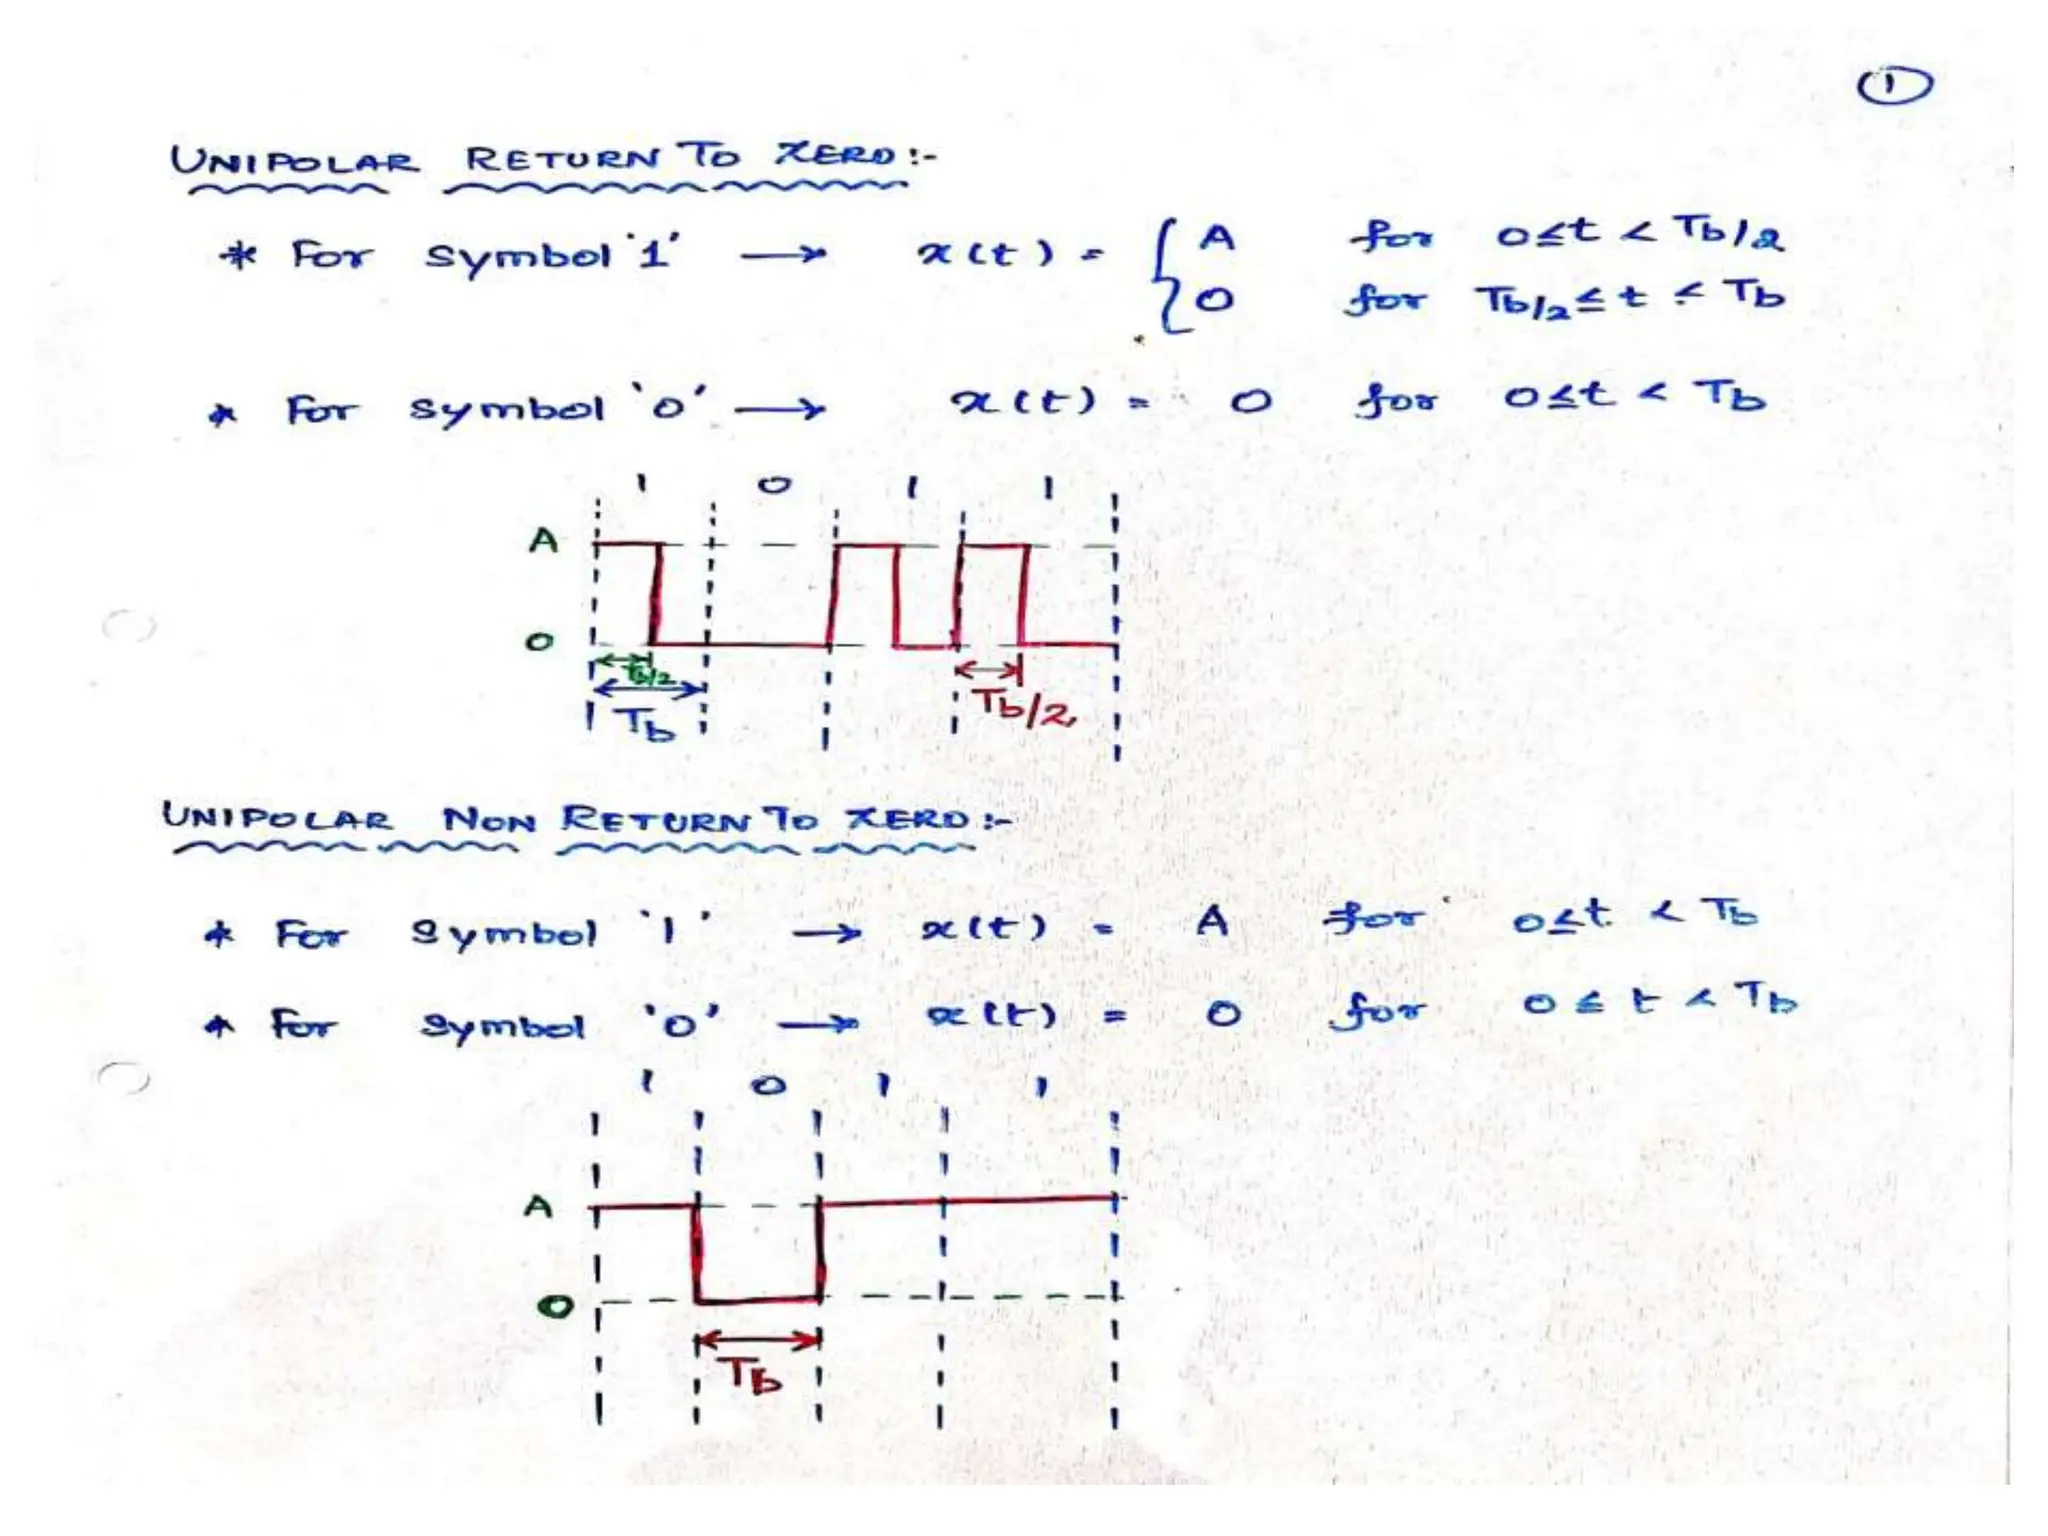 1
UNIPOLAR RETURN TO ZERO :-
* For symbol '1' → x(t) = { A for 0≤t < Tb/2
0 for Tb/2 ≤ t ≤ Tb
* For symbol '0' → x(t) = 0 for 0≤t < Tb
1 0 1 1
A
0
Tb/2
Tb
Tb/2
UNIPOLAR NON RETURN TO ZERO :-
* For symbol '1' → x(t) = A for 0≤t < Tb
* for symbol '0' → x(t) = 0 for 0 ≤ t < Tb
1 0 1 1
A
0
Tb